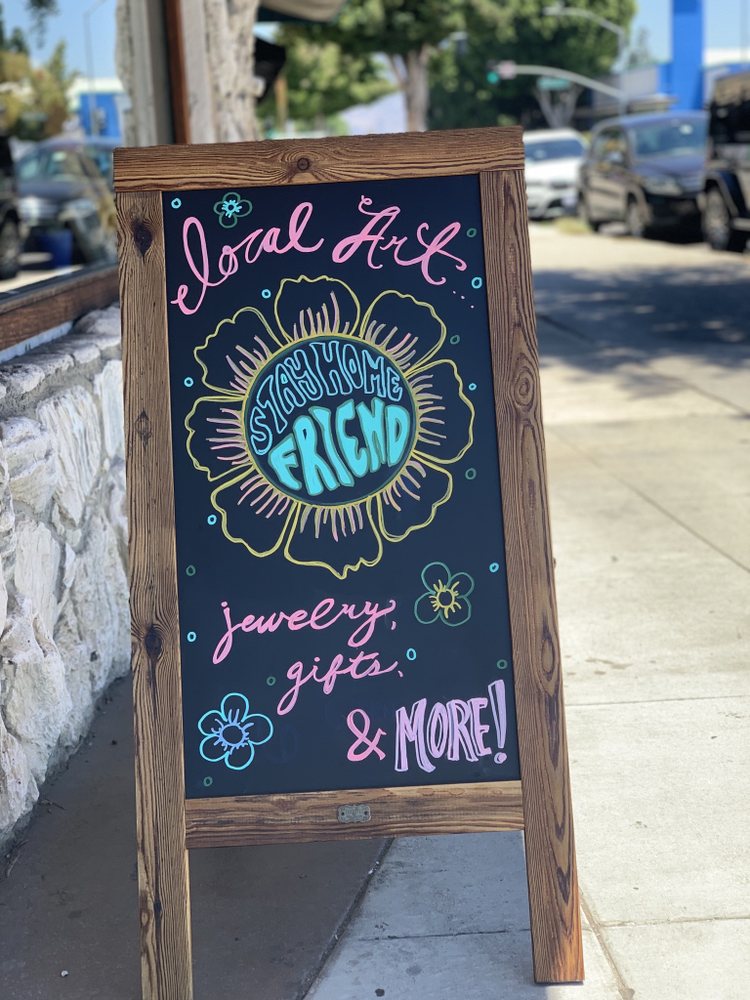 local Art...
STAY HOME
FRIEND
jewelry,
gifts,
& MORE!